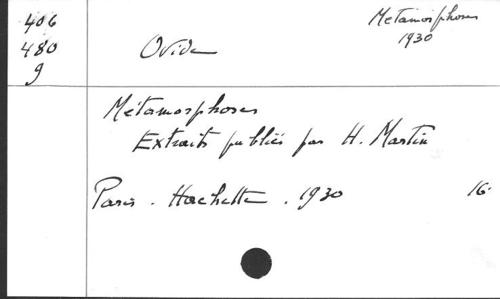 406
480
9
Metamorphoses
1930
Ovide
Métamorphoses
Extraits publiés par H. Martin
Paris - Hachette . 1930 16°